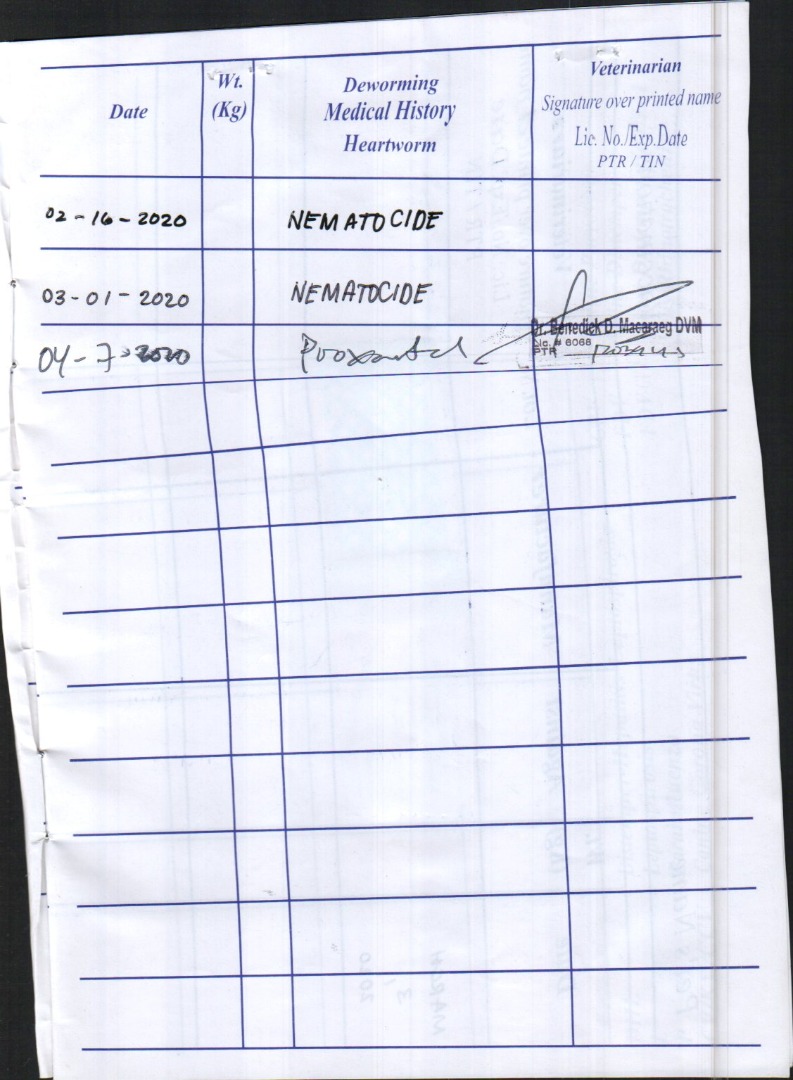 Date
Wt.
(Kg)
Deworming
Medical History
Heartworm
Veterinarian
Signature over printed name
Lic. No./Exp.Date
PTR / TIN
02-16-2020
NEMATOCIDE
03-01-2020
NEMATOCIDE
04-7-2020
Dr. Benedick D. Macaraeg DVM
Lic. # 6068
PTR